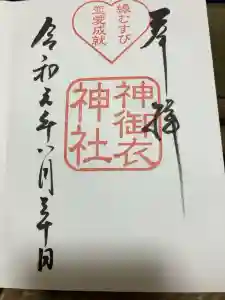 奉拝
縁むすび
恋愛成就
神御衣
神社
令和元年八月三十日